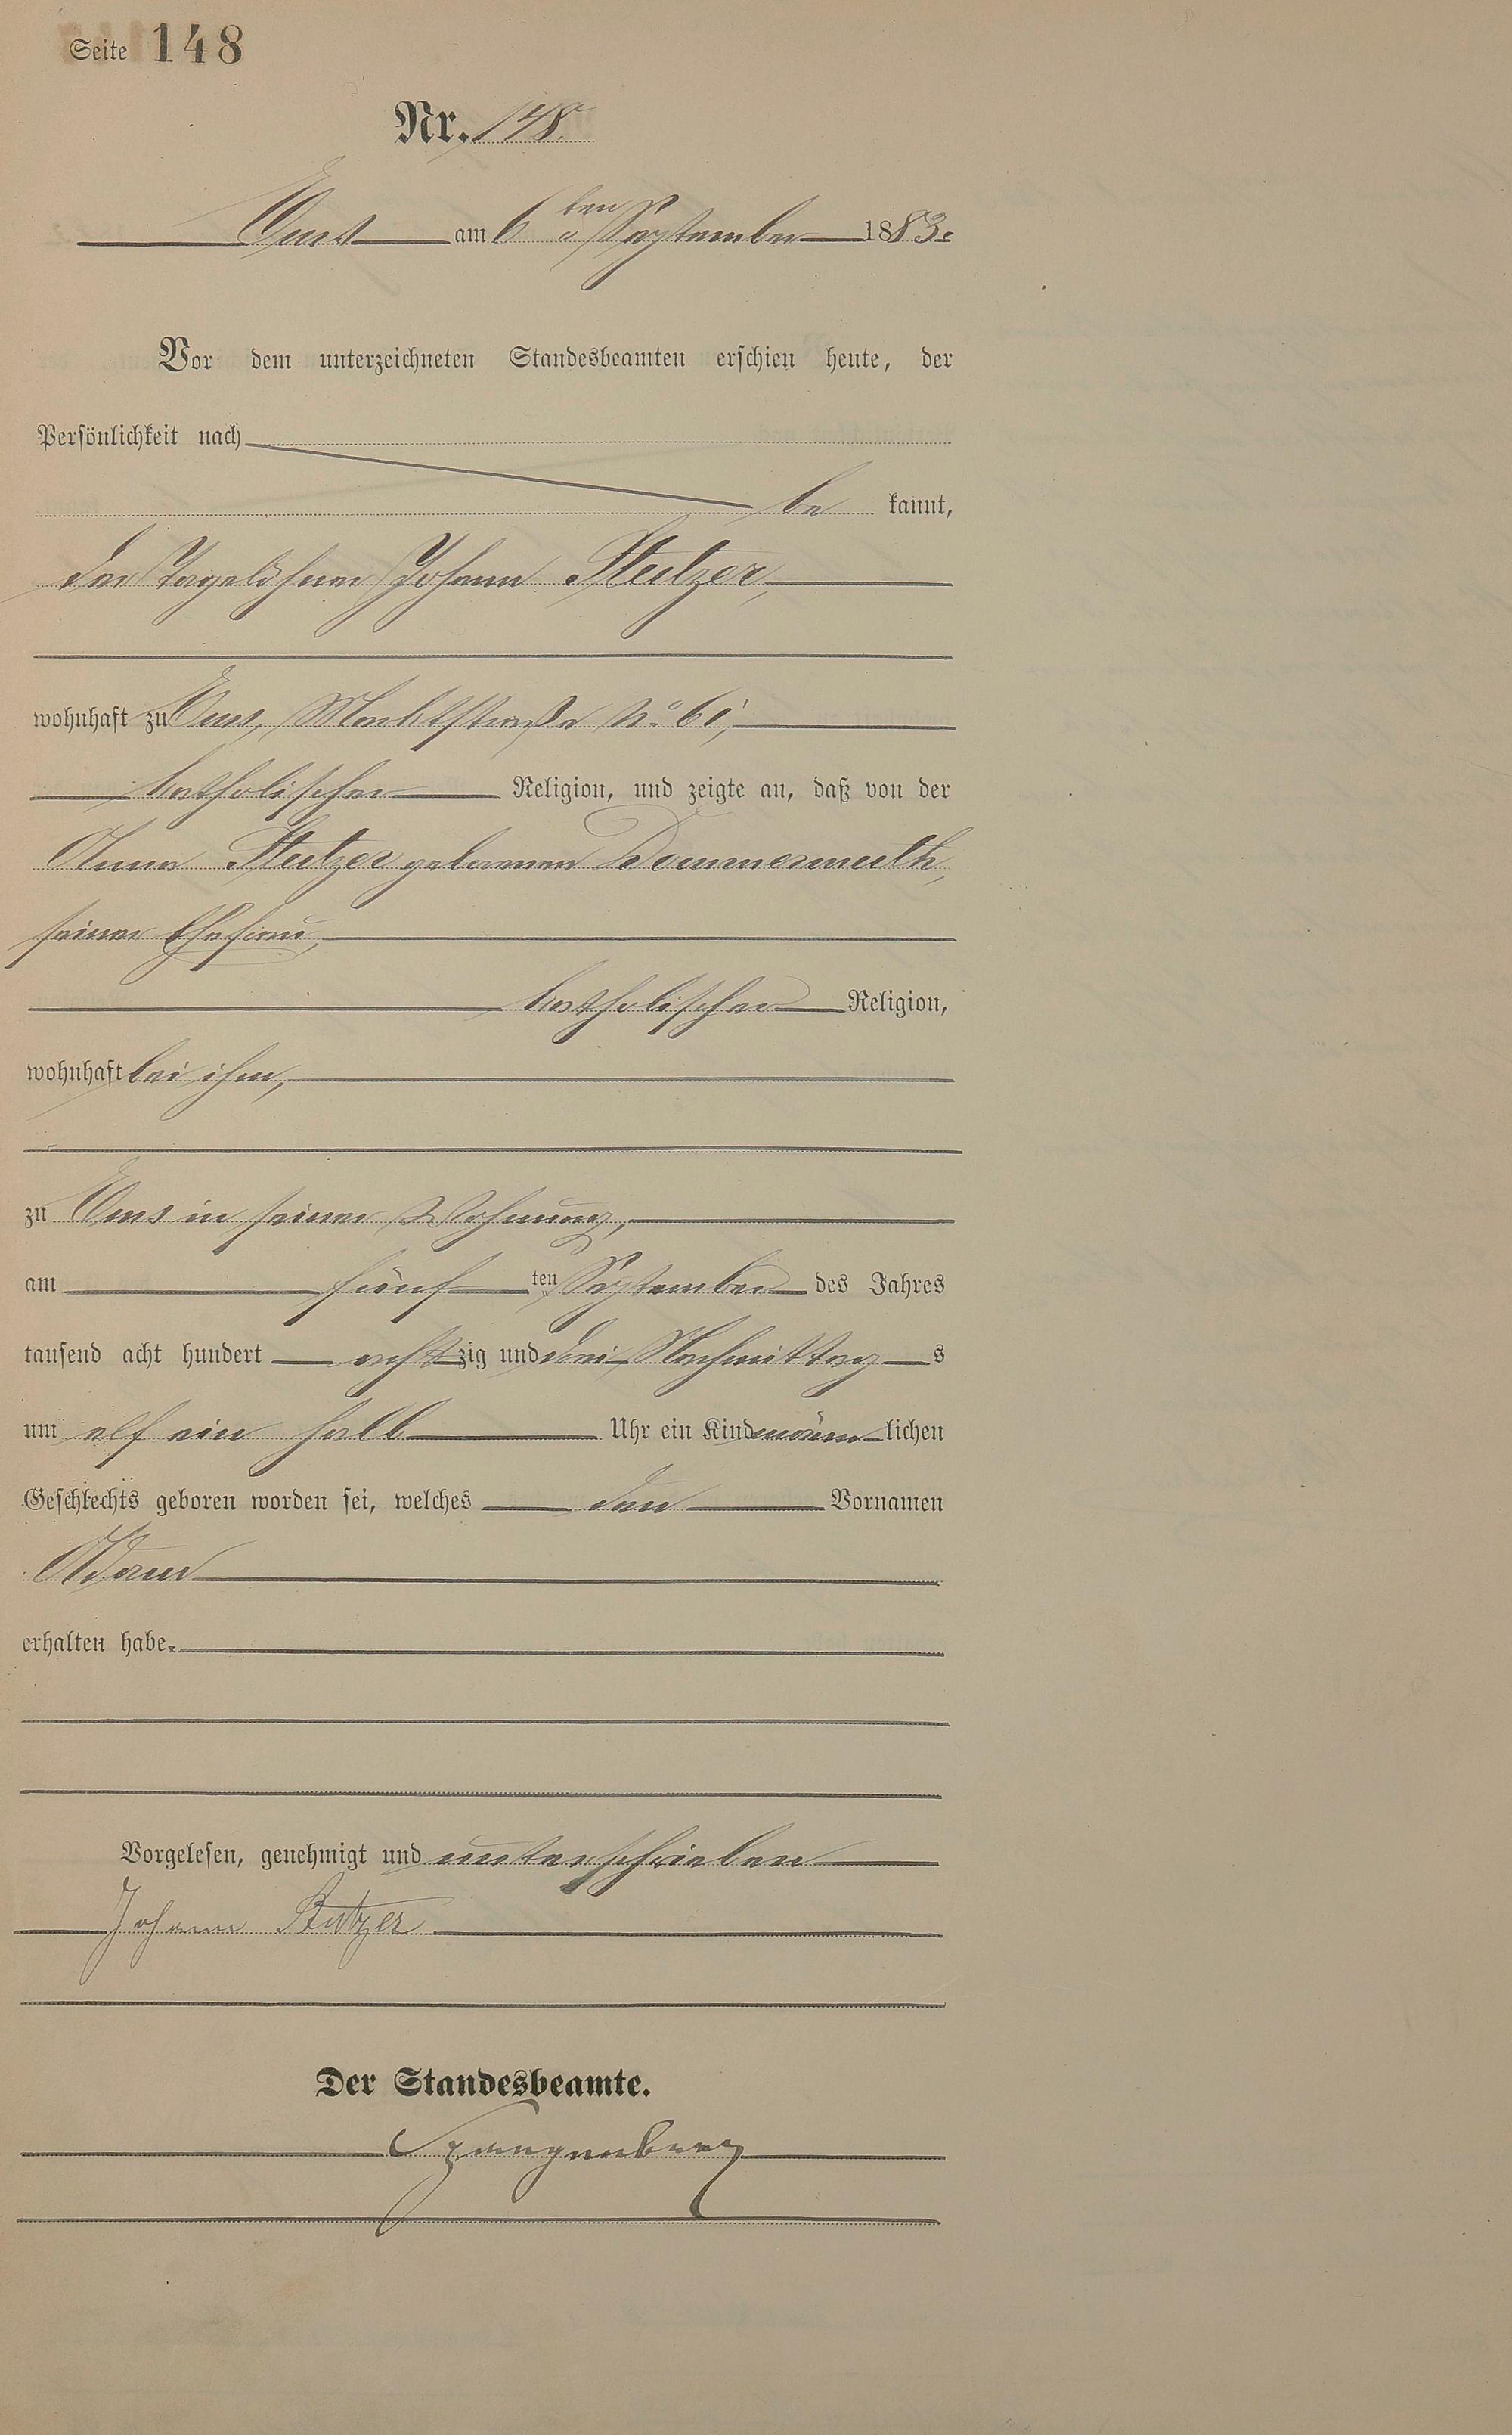 Seite 148
Nr. 148.
Ems am 6ten September 1883.
Vor dem unterzeichneten Standesbeamten erschien heute, der
Persönlichkeit nach
be kannt,
der Tagelöhner Johann Stutzer,
wohnhaft zu Ems, Marktstraße No 61,
katholischer Religion, und zeigte an, daß von der
Anna Stutzer geborenen Dommermuth,
seiner Ehefrau,
katholischer Religion,
wohnhaft bei ihm,
zu Ems in seiner Wohnung,
am fünf ten September des Jahres
tausend acht hundert achtzig und drei Nachmittags
um elf ein halb Uhr ein Kind männlichen
Geschlechts geboren worden sei, welches den Vornamen
Adam
erhalten habe.
Vorgelesen, genehmigt und unterschrieben
Johann Stutzer
Der Standesbeamte.
Spangenberg